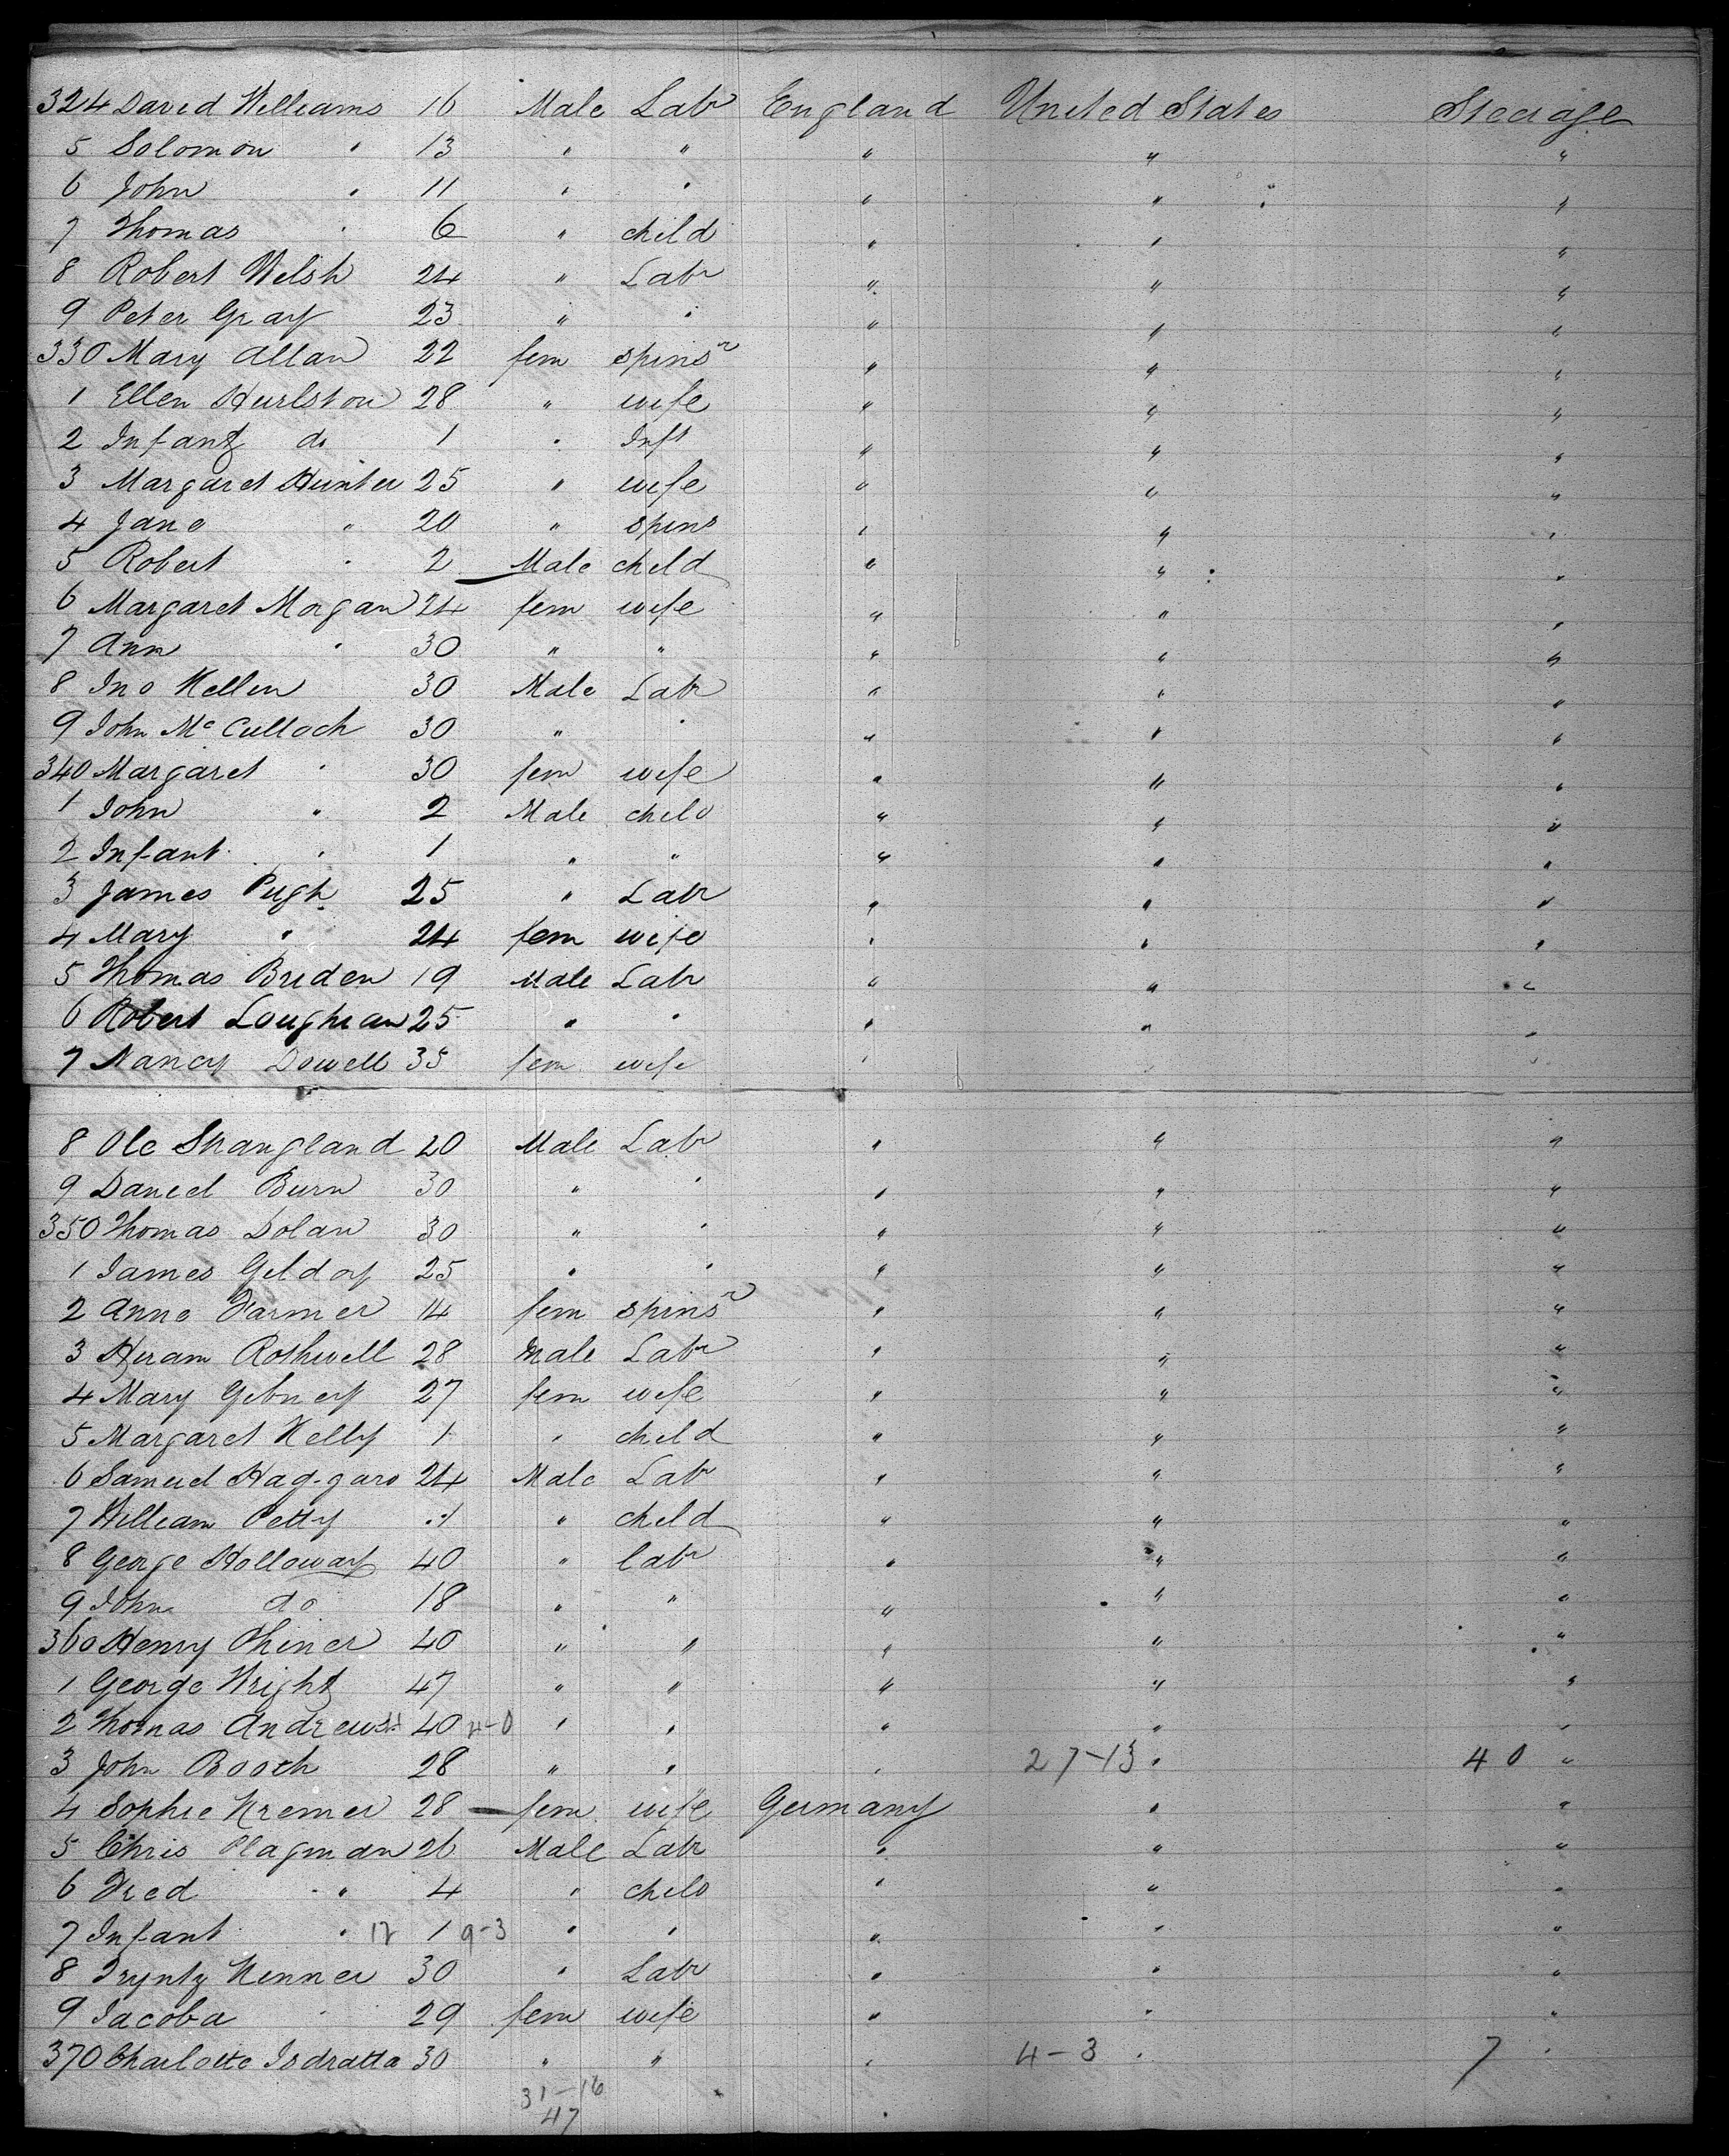 324 David Williams 16 Male Labr England United States Steerage
5 Solomon " 13 " " " " "
6 John " 11 " " " " "
7 Thomas " 6 " child " " "
8 Robert Welsh 24 " Labr " " "
9 Peter Gray 23 " " " " "
330 Mary Allan 22 fem spinsr " " "
1 Ellen Hurlston 28 " wife " " "
2 Infant do 1 " Inft " " "
3 Margaret Hunter 25 " wife " " "
4 Jane " 20 " spins " " "
5 Robert " 2 Male child " " "
6 Margaret Morgan 24 fem wife " " "
7 Ann " 30 " " " " "
8 Jno Kellen 30 Male Labr " " "
9 John Mc Culloch 30 " " " " "
340 Margaret " 30 fem wife " " "
1 John " 2 Male child " " "
2 Infant " 1 " " " " "
3 James Pugh 25 " Labr " " "
4 Mary " 24 fem wife " " "
5 Thomas Briden 19 Male Labr " " "
6 Robert Loughran 25 " " " " "
7 Nancy Dowell 35 fem wife " "
8 Ole Skangland 20 Male Labr " " "
9 Daniel Burn 30 " " " " "
350 Thomas Dolan 30 " " " " "
1 James Gildoy 25 " " " " "
2 Anne Farmer 14 fem spinsr " " "
3 Hiram Rothwell 28 Male Labr " " "
4 Mary Gibney 27 fem wife " " "
5 Margaret Kelly 1 " child " " "
6 Samuel Haggard 24 Male Labr " " "
7 William Petty 1 " child " " "
8 George Holloway 40 " labr " " "
9 John do 18 " " " " "
360 Henry Phiner 40 " " " " "
1 George Wright 47 " " " " "
2 Thomas Andrews 40 4-0 " " " " "
3 John Booth 28 " " " 27-13 " 40 "
4 Sophie Kremer 28 fem wife Germany " "
5 Chris Plagman 26 Male Labr " " "
6 Fred " 4 " child " " "
7 Infant " 12 1 9-3 " " " " "
8 Trynty Kenner 30 " Labr " " "
9 Jacoba " 29 fem wife " " "
370 Charlotte Isdratta 30 " " " 4-3 " 7 "
31-16
47